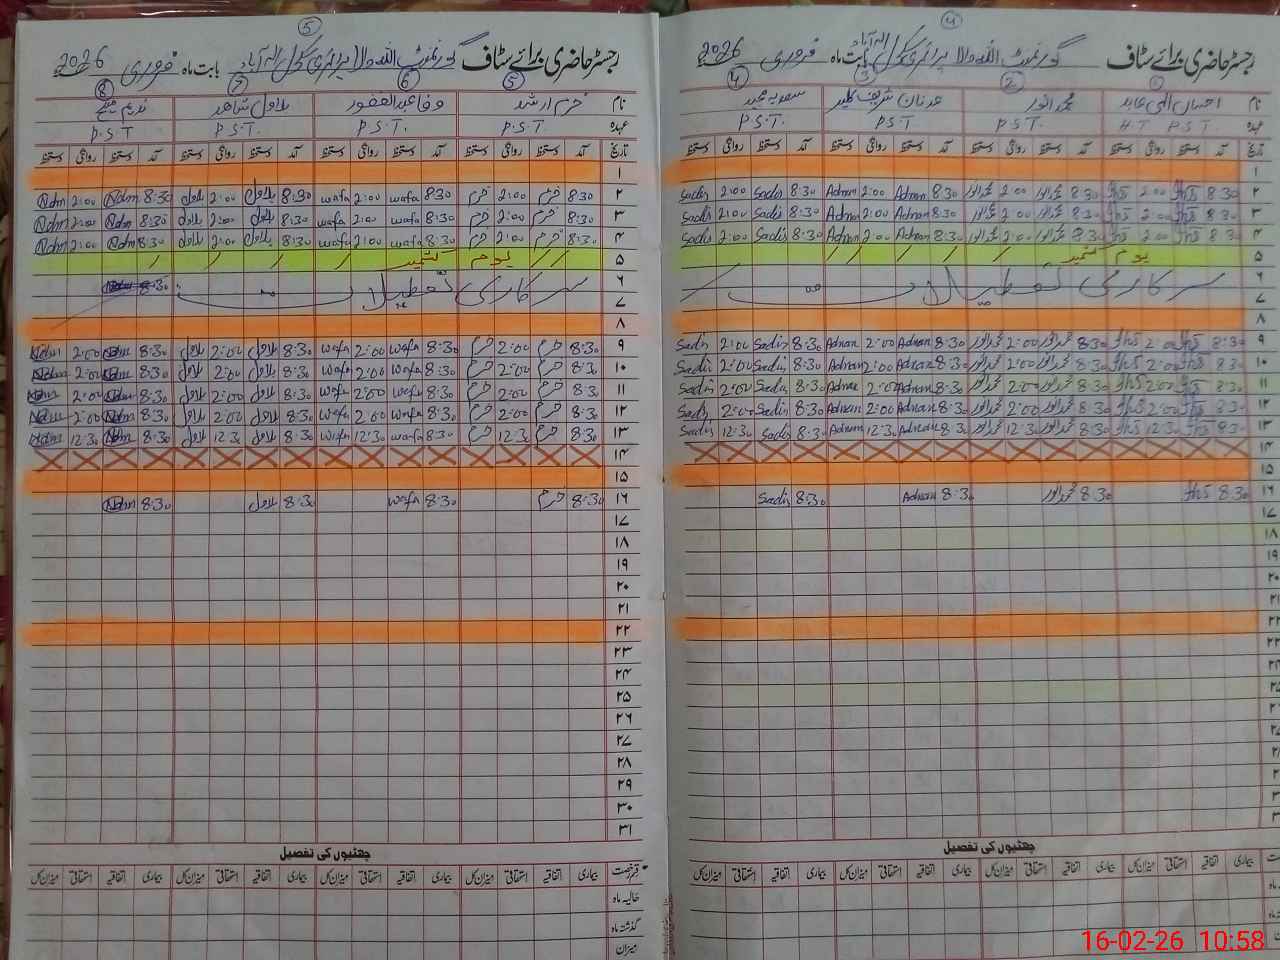 5
رجسٹر حاضری برائے سٹاف گورنمنٹ اللہ والا پرائمری سکول الہ آباد بابت ماہ فروری 2026
5 6 7 8
نام خرم ارشد وفا عبدالغفور بلاول شاہد ندیم
عہدہ P.S.T. P.S.T. P.S.T. P.S.T
تاریخ آمد دستخط روانگی دستخط آمد دستخط روانگی دستخط آمد دستخط روانگی دستخط آمد دستخط روانگی دستخط
۱
۲ 8:30 خرم 2:00 خرم 8:30 wafa 2:00 wafa 8:30 بلاول 2:00 بلاول 8:30 Ndm 2:00 Ndm
۳ 8:30 خرم 2:00 خرم 8:30 wafa 2:00 wafa 8:30 بلاول 2:00 بلاول 8:30 Ndm 2:00 Ndm
۴ 8:30 خرم 2:00 خرم 8:30 wafa 2:00 wafa 8:30 بلاول 2:00 بلاول 8:30 Ndm 2:00 Ndm
۵ یوم کشمیر
۶ سرکاری تعطیلات
۷
۸
۹ 8:30 خرم 2:00 خرم 8:30 wafa 2:00 wafa 8:30 بلاول 2:00 بلاول 8:30 Ndm 2:00 Ndm
۱۰ 8:30 خرم 2:00 خرم 8:30 wafa 2:00 wafa 8:30 بلاول 2:00 بلاول 8:30 Ndm 2:00 Ndm
۱۱ 8:30 خرم 2:00 خرم 8:30 wafa 2:00 wafa 8:30 بلاول 2:00 بلاول 8:30 Ndm 2:00 Ndm
۱۲ 8:30 خرم 2:00 خرم 8:30 wafa 2:00 wafa 8:30 بلاول 2:00 بلاول 8:30 Ndm 2:00 Ndm
۱۳ 8:30 خرم 12:30 خرم 8:30 wafa 12:30 wafa 8:30 بلاول 12:30 بلاول 8:30 Ndm 12:30 Ndm
۱۴
۱۵
۱۶ 8:30 خرم 8:30 wafa 8:30 بلاول 8:30 Ndm
۱۷
۱۸
۱۹
۲۰
۲۱
۲۲
۲۳
۲۴
۲۵
۲۶
۲۷
۲۸
۲۹
۳۰
۳۱
چھٹیوں کی تفصیل
قسم رخصت بیماری اتفاقیہ استحقاقی میزان کل بیماری اتفاقیہ استحقاقی میزان کل بیماری اتفاقیہ استحقاقی میزان کل بیماری اتفاقیہ استحقاقی میزان کل
حالیہ ماہ
گذشتہ ماہ
میزان
4
رجسٹر حاضری برائے سٹاف گورنمنٹ اللہ والا پرائمری سکول الہ آباد بابت ماہ فروری 2026
1 2 3 4
نام احسان الہی عابد محمد انور عدنان شریف سعدیہ مجید
عہدہ H.T P.S.T P.S.T. P.S.T P.S.T.
تاریخ آمد دستخط روانگی دستخط آمد دستخط روانگی دستخط آمد دستخط روانگی دستخط آمد دستخط روانگی دستخط
۱
۲ 8:30 2:00 8:30 محمد انور 2:00 محمد انور 8:30 Adnan 2:00 Adnan 8:30 Sadis 2:00 Sadis
۳ 8:30 2:00 8:30 محمد انور 2:00 محمد انور 8:30 Adnan 2:00 Adnan 8:30 Sadis 2:00 Sadis
۴ 8:30 2:00 8:30 محمد انور 2:00 محمد انور 8:30 Adnan 2:00 Adnan 8:30 Sadis 2:00 Sadis
۵ یوم کشمیر
۶ سرکاری تعطیلات
۷
۸
۹ 8:30 2:00 8:30 محمد انور 2:00 محمد انور 8:30 Adnan 2:00 Adnan 8:30 Sadis 2:00 Sadis
۱۰ 8:30 2:00 8:30 محمد انور 2:00 محمد انور 8:30 Adnan 2:00 Adnan 8:30 Sadis 2:00 Sadis
۱۱ 8:30 2:00 8:30 محمد انور 2:00 محمد انور 8:30 Adnan 2:00 Adnan 8:30 Sadis 2:00 Sadis
۱۲ 8:30 2:00 8:30 محمد انور 2:00 محمد انور 8:30 Adnan 2:00 Adnan 8:30 Sadis 2:00 Sadis
۱۳ 8:30 12:30 8:30 محمد انور 12:30 محمد انور 8:30 Adnan 12:30 Adnan 8:30 Sadis 12:30 Sadis
۱۴
۱۵
۱۶ 8:30 8:30 محمد انور 8:30 Adnan 8:30 Sadis
۱۷
۱۸
۱۹
۲۰
۲۱
۲۲
۲۳
۲۴
۲۵
۲۶
۲۷
۲۸
۲۹
چھٹیوں کی تفصیل
بیماری اتفاقیہ استحقاقی میزان کل بیماری اتفاقیہ استحقاقی میزان کل بیماری اتفاقیہ استحقاقی میزان کل بیماری اتفاقیہ استحقاقی میزان کل
16-02-26 10:58